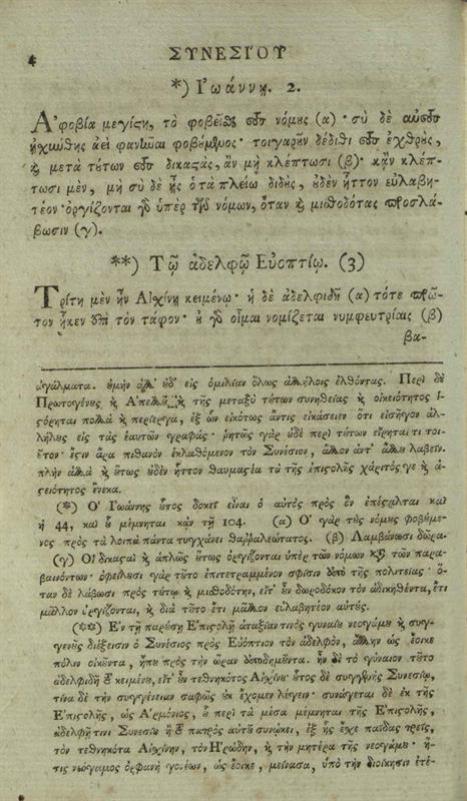 4
ΣΥΝΕΣΙΟΥ
*) Ἰωάννῃ. 2.
Ἀφοβία μεγίςη, τὸ φοβεῖσθαι τοὺς νόμους (α)· σὺ δὲ αὐτοὺς
ᾐσχύνθης ἀεὶ φανῆναι φοβούμενος· τοιγαροῦν δέδιθι τοὺς ἐχθροὺς,
ϗ μετὰ τούτων τοὺς δικαςὰς, ἂν μὴ κλέπτωσι (β)· κἂν κλέπ-
τωσι μὲν, μὴ σὺ δὲ ᾖς ὁ τὰ πλείω διδοὺς, οὐδὲν ἧττον εὐλαβη-
τέον· ὀργίζονται γὸ ὑπὲρ τῶν νόμων, ὅταν ϗ μισθοδότας προσλά-
βωσιν (γ).
**) Τῷ ἀδελφῷ Εὐοπτίῳ. (3)
Τρίτη μὲν ἦν Αἰσχίνῃ κειμένῳ· ἡ δὲ ἀδελφιδῆ (α) τότε πρῶ-
τον ἧκεν ἐπὶ τὸν τάφον· οὐ γὸ οἶμαι νομίζεται νυμφευτρίαις (β)
βα-
ωγάλματα. ὑμὴν ἀλλ' οὐδ' εἰς ὁμιλίαν ὅλως ἀλλήλοις ἐλθόντας. Περὶ δὲ
Πρωτογένους ϗ Ἀπελλοῦ, ϗ τῆς μεταξὺ τούτων συνηθείας ϗ οἰκειότητος ἱ-
ςόρηται πολλὰ ϗ περίεργα, ἐξ ὧν εἰκότως ἄντις εἰκάσειεν ὅτι εἰσῆγον ἀλ-
λήλους εἰς τὰς ἑαυτῶν γραφάς· ῥητῶς γὰρ οὐδὲ περὶ τούτων εἴρηταί τι τοι-
οῦτον· ἔςιν ἄρα πιθανὸν ἐκλαθόμενον τὸν Συνέσιον, ἄλλον ἀντ' ἄλλου λαβεῖν.
πλὴν ἀλλὰ ϗ οὕτως οὐδὲν ἧττον θαυμασία τὰ τῆς ἐπιςολῆς χάριτός γε ϗ ἀ-
ςειότητος ἕνεκα.
(*) Ὁ Ἰωάννης οὗτος δοκεῖ εἶναι ὁ αὐτὸς πρὸς ὃν ἐπέςαλται καὶ
ἡ 44, καὶ οὗ μέμνηται κἀν τῇ 104. (α) Ὁ γὰρ τοὺς νόμους φοβούμε-
νος πρὸς τὰ λοιπὰ πάντα τυγχάνει θαῤῥαλεώτατος. (β) Λαμβάνωσι δῶρα.
(γ) Οἱ δικαςαὶ ϗ ἁπλῶς οὕτως ὀργίζονται ὑπὲρ τῶν νόμων κατὰ τῶν παρα-
βαινόντων· ὀφείλουσι γὰρ τοῦτο ἐπιτετραμμένον σφίσιν ὑπὸ τῆς πολιτείας· ὅ-
ταν δὲ λάβωσι πρὸς τούτῳ ϗ μισθοδότην, εἴτ' οὖν δωροδόκον τὸν ἀδικηθέντα, ἔτι
μᾶλλον ὀργίζονται, ϗ διὰ τοῦτο ἔτι μᾶλλον εὐλαβητέον αὐτούς.
(**) Ἐν τῇ παρούσῃ Ἐπιςολῇ ἀταξίαν τινὸς γυναίου νεογάμου ϗ συγ-
γενοῦς διέξεισιν ὁ Συνέσιος πρὸς Εὐόπτιον τὸν ἀδελφὸν, ἄλλην ὡς ἔοικε
πόλιν οἰκοῦντα, ἤπου πρὸς τὴν ὥραν ἀποδημοῦντα. ἦν δὲ τὸ γύναιον τοῦτο
ἀδελφιδῆ τοῦ κειμένου, εἴτ' οὖν τεθνηκότος Αἰσχίνου· οὗτος δὲ συγγενὴς Συνεσίῳ,
τίνα δὲ τὴν συγγένειαν σαφῶς οὐκ ἔχομεν λέγειν· συνάγεται δὲ ἐκ τῆς
Ἐπιςολῆς, ὡς Ἁρμόνιος, οὗ περὶ τὰ μέσα μέμνηται τῆς Ἐπιςολῆς,
ἀδελφῇ τινι Συνεσίου ἢ τοῦ πατρὸς αὐτοῦ συνῴκει, ἐξ ἧς ἔσχε παῖδας τρεῖς,
τὸν τεθνηκότα Αἰσχίνην, τὸν Ἡρώδην, ϗ τὴν μητέρα τῆς νεογάμου· ἥ-
τις νεόγαμος ὀρφανὴ γονέων, ὡς ἔοικε, μείνασα, ὑπὸ τὴν διοίκησιν ἐτέ-